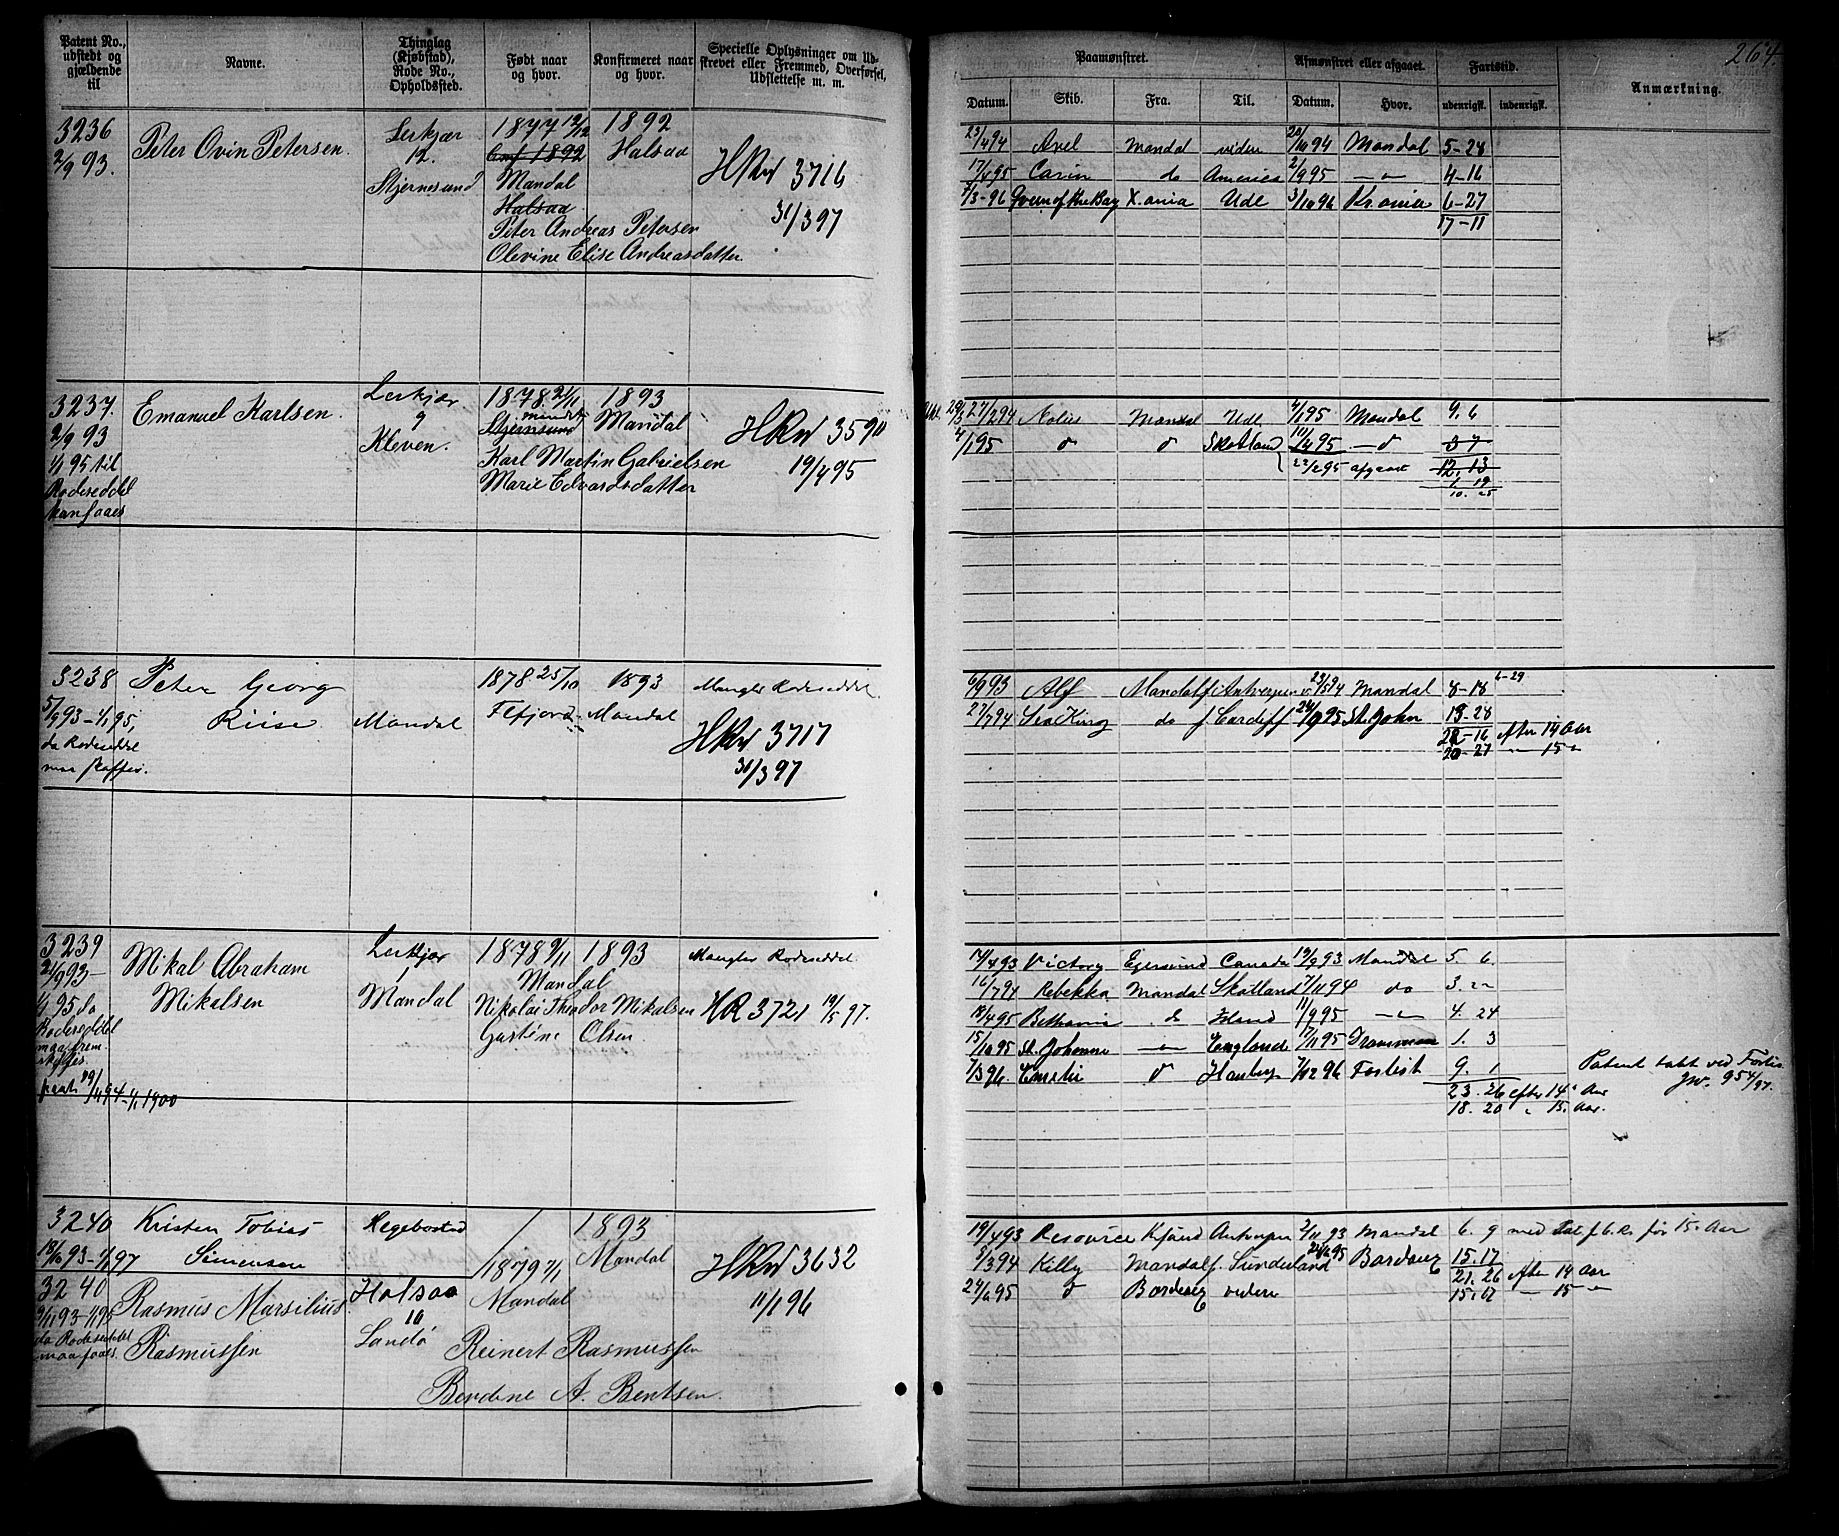 264
Patent No., udstedt og gjældende til
Navne.
Thinglag (Kjøbstad), Rode No., Opholdssted.
Født naar og hvor.
Konfirmeret naar og hvor.
Specielle Oplysninger om Udskrevet eller Fremmed, Overførsel, Udslettelse m. m.
Paamønstret.
Afmønstret eller afgaaet.
Fartstid.
Anmærkning.
Datum. Skib. Fra. Til. Datum. Hvor. udenrigsk. indenrigsk.
3236
2/9 93.
Peter Ovin Petersen.
Lerkjær
12.
Stjernesund
1877 12/12
Conf 1892
Mandal
Halsaa
Peter Andreas Petersen
Olevine Elise Andreasdatter.
1892
Halsaa
HRw 3716
31/3 97
23/4 94 Axel Mandal viden 20/10 94 Mandal 5-28
17/4 95 Carin do America 2/9 95 — " — 4-16
7/3-96 Queen of the Bay X.ania Udl 3/10 96 Kr.ania 6-27
17-11
3237.
2/9 93
1/1 95 til
Rodeseddel
kan faaes
Emanuel Karlsen.
Lerkjær
9
Kleven.
1878. 21/11
Mandal
Stjernsund
1893
Mandal
Karl Martin Gabrielsen
Marie Edvardsdatter
HRw 3590
19/4 95
27/2 94 Mandal Udl 4/1 95 Mandal 9. 6
4/1 95 d d Skotland 11/4 95 — d 3 7
22/2 95 afgaaet 12. 13
1. 19
10. 25
3238
5/9 93 – 1/1 95,
da Rodeseddel
maa skaffes.
Peter Georg
Riise
Mandal
1878. 25/10
1893
Mandal
Mangler Rodeseddel.
HRw 3717
31/3 97
6/9 93 Alf Mandal f. Antwerpen 23/5 94 Mandal 8-18 6-29
27/7 94 Sea King do f. Cardiff 24/9 95 St. John 13-28
22-16 efter 14 Aar
20-27 — " — 15 "
3239
21/9 93 –
1/1 95 da
Rodeseddel
maa frem
skaffes.
Mikal Abraham
Mikalsen
Lerkjær
1
Mandal
1878 9/11
Mandal
1893
Nikolai Theodor Mikalsen
Gustine Olsen
Mangler Rodeseddel.
HR 3721 19/5 97.
17/4 93 Victory Egersund Canada 19/9 93 Mandal 5. 6.
16/7 94 Rebekka Mandal Skotland 7/11 94 do 3. 22
18/4 95 Bethania do Island 11/9 95 — " — 4. 24
15/10 95 St. Johanne — " — England 17/11 95 Drammen 1. 3
7/3 96 Emilie d 7/12 96 Forlist 9. 1
23. 26 efter 14 Aar
18. 20 " 15. Aar.
Patent tabt ved Forlis
Jw. 95 4/97.
3240
18/10 93 – 1/1 97
Kristen Tobias
Simensen
Hegebostad
1893
Mandal
19/4 93 Resource Antwerpen 2/11 93 Mandal 6. 9 med Pat f. 6. R. før 15. Aar
3240
9/11 93 – 1/1 95
da Rodeseddel
maa faaes.
Rasmus Marsilius
Rasmussen
Halsaa
10
Landø
1879 7/1
Mandal
Reinert Rasmussen
Berdine A. Bentsen.
HRw 3632
11/1 96
5/3 94 Killy Mandal f. Sunderland 24/6 95 15. 17
21. 26 efter 14 Aar
24/6 95 d videre 15. 17 — " — 15 "